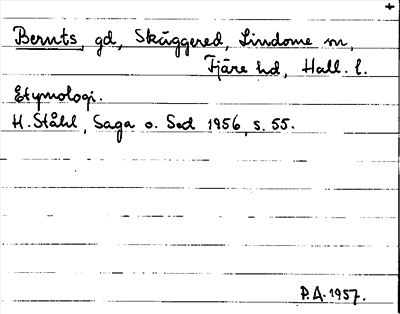 +
Bernts, gd, Skäggered, Lindome sn,
Fjäre hd, Hall. l.
Etymologi.
H. Ståhl, Saga o. Sed 1956, s. 55.
P.A. 1957.